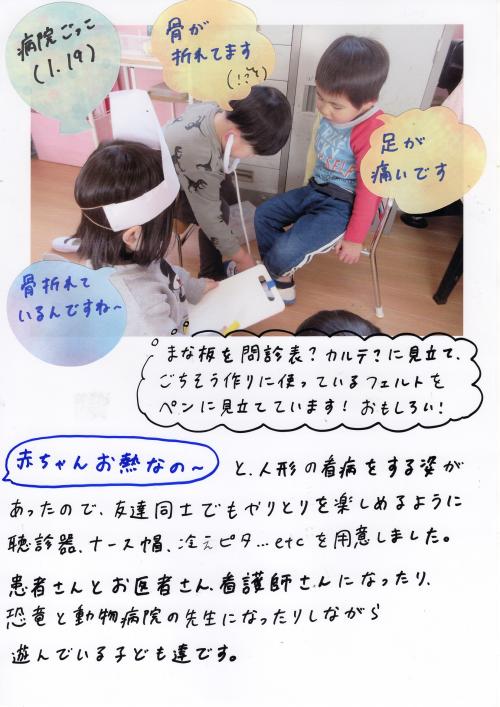 病院ごっこ
(1.19)
骨が
折れてます
(!?うそ)
足が
痛いです
骨折れて
いるんですね〜
まな板を問診表?カルテ?に見立て、
ごちそう作りに使っているフェルトを
ペンに見立てています!おもしろい!
赤ちゃんお熱なの〜 と、人形の看病をする姿が
あったので、友達同士でもやりとりを楽しめるように
聴診器、ナース帽、冷えピタ…etcを用意しました。
患者さんとお医者さん、看護師さんになったり、
恐竜と動物病院の先生になったりしながら
遊んでいる子ども達です。